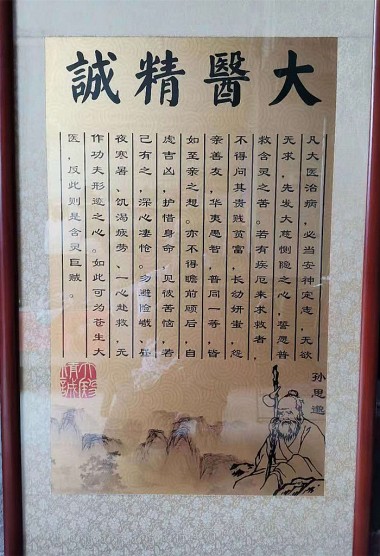 大醫精誠
凡大医治病，必当安神定志，无欲
无求，先发大慈恻隐之心，誓愿普
救含灵之苦。若有疾厄来求救者，
不得问其贵贱贫富，长幼妍蚩，怨
亲善友，华夷愚智，普同一等，皆
如至亲之想。亦不得瞻前顾后，自
虑吉凶，护惜身命。见彼苦恼，若
己有之，深心凄怆。勿避险巇、昼
夜寒暑、饥渴疲劳、一心赴救，无
作功夫形迹之心。如此可为苍生大
医，反此则是含灵巨贼。
孙思邈
大醫精誠